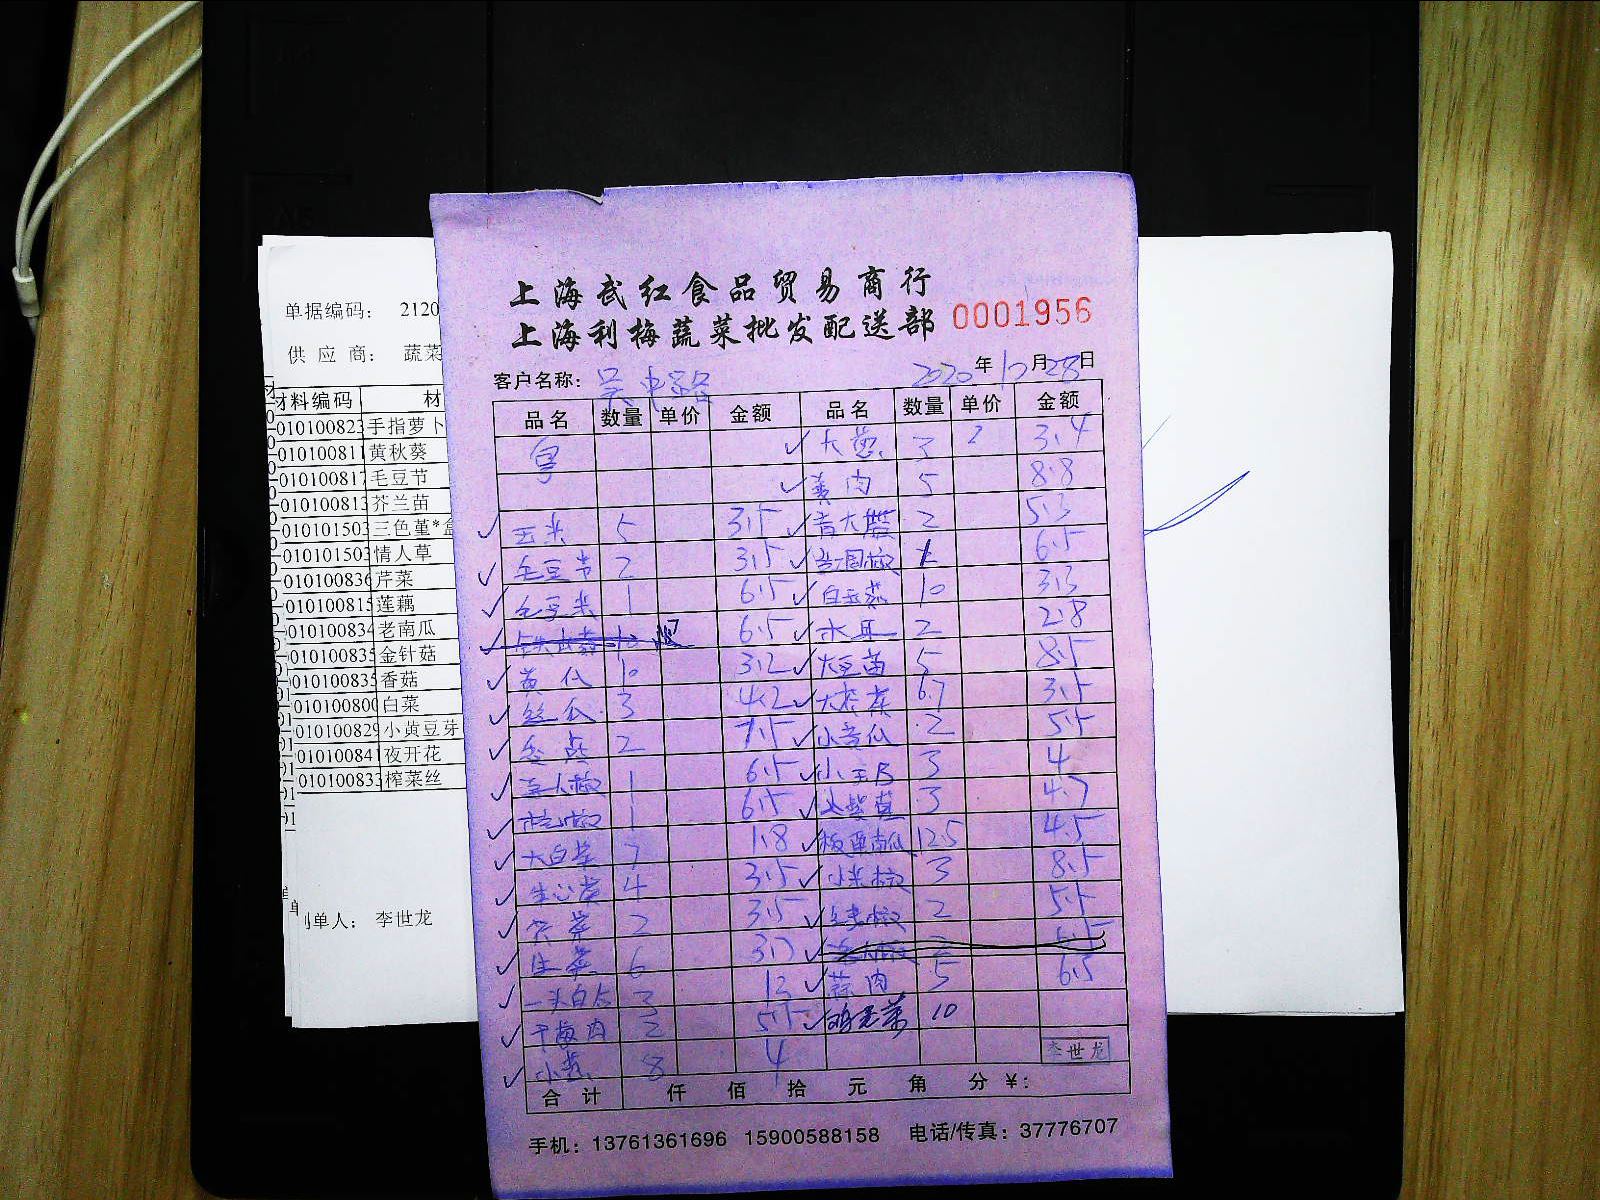 上海武红食品贸易商行
上海利梅蔬菜批发配送部 0001956
客户名称: 吴中路 2020年12月28日
品名 数量 单价 金额 品名 数量 单价 金额
大葱 3 2 3.4
姜肉 5 8.8
玉米 5 3.5 青大蒜 2 5.3
毛豆节 2 3.5 6.5
毛豆米 1 6.5 10 3.3
6.5 木耳 2 2.8
黄瓜 10 3.2 大豆苗 5 8.5
丝瓜 3 4.2 6.7 3.5
香菇 2 7.5 小黄瓜 2 5.5
美人椒 1 6.5 小土豆 3 4
杭椒 1 6.5 3 4.7
大白菜 7 1.8 板栗南瓜 12.5 4.5
生心菜 4 3.5 小米椒 3 8.5
2 3.5 2 5.5
生菜 6
3 蒜肉 5 6.5
2 5.5 鸡毛菜 10
小葱 8 4
李世龙
合计 仟 佰 拾 元 角 分 ¥:
手机: 13761361696 15900588158 电话/传真: 37776707
单据编码: 2120
供应商: 蔬菜
材料编码 材
010100823 手指萝卜
01010081 黄秋葵
01010081 毛豆节
010100813 芥兰苗
010101503 三色堇*盒
010101503 情人草
010100836 芹菜
010100815 莲藕
010100834 老南瓜
010100835 金针菇
010100835 香菇
010100800 白菜
010100829 小黄豆芽
010100841 夜开花
010100833 榨菜丝
制单人: 李世龙